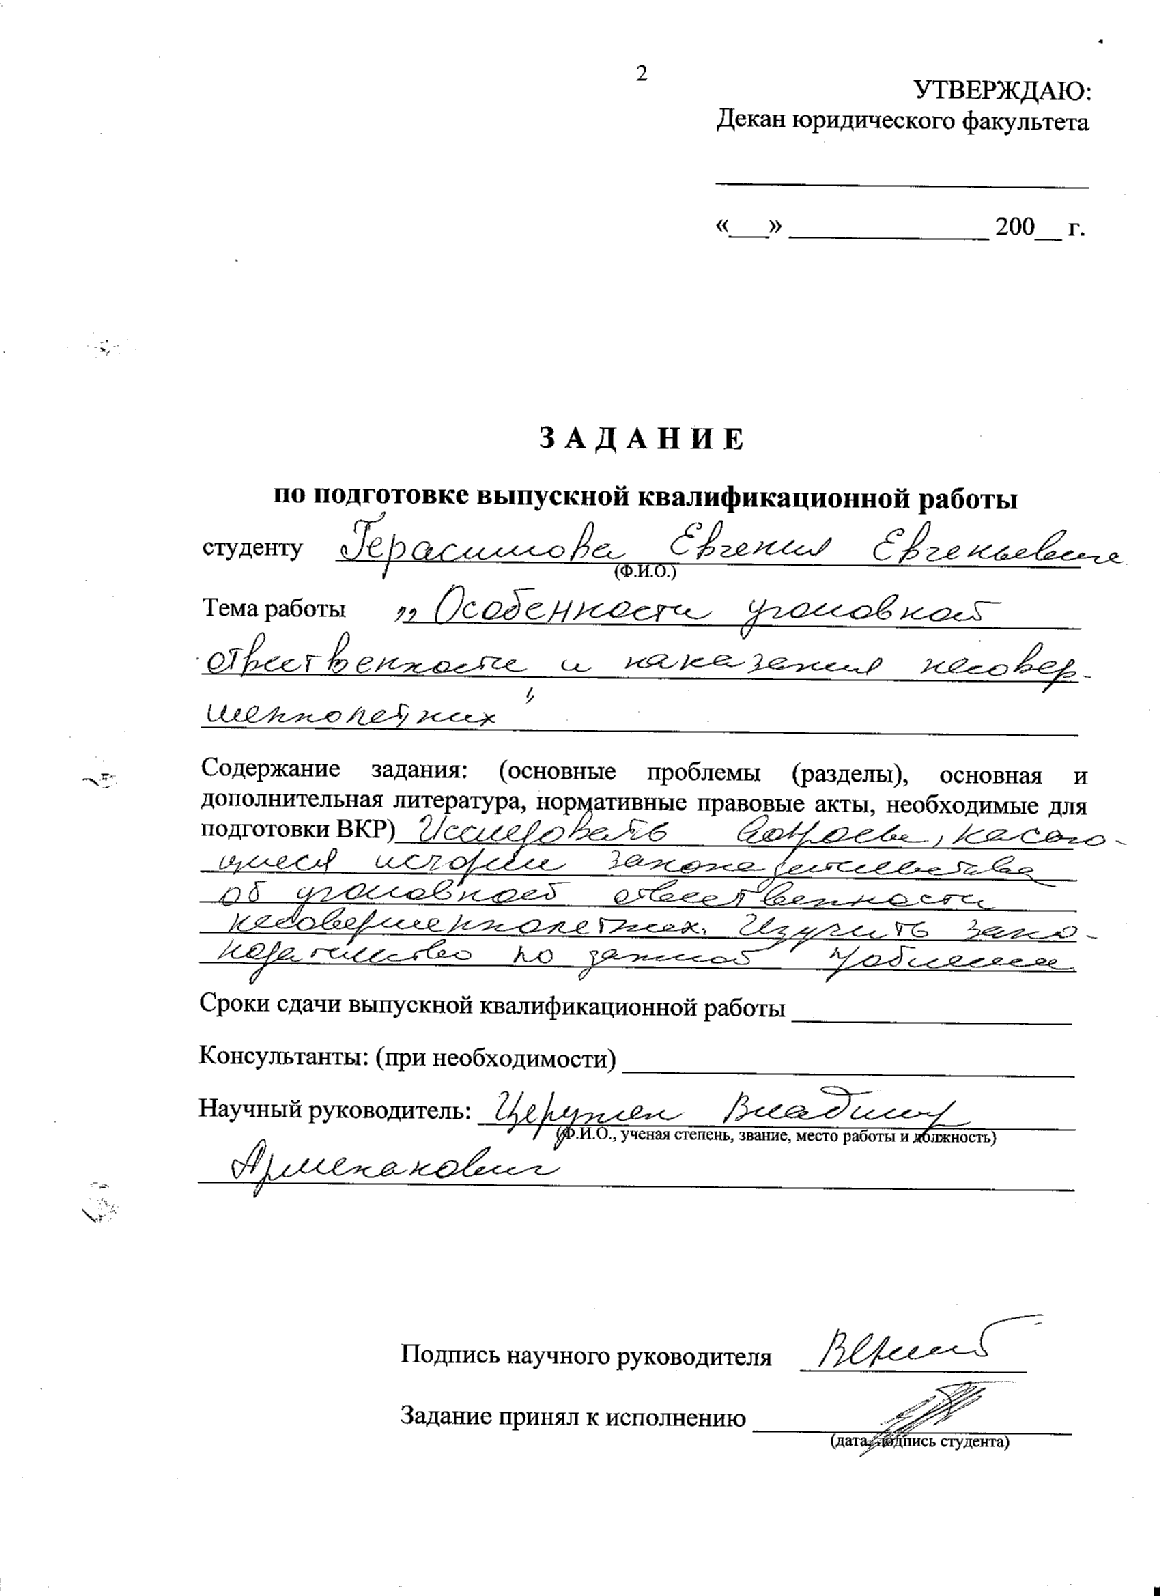 2
УТВЕРЖДАЮ:
Декан юридического факультета
«___» _______________ 200__ г.
ЗАДАНИЕ
по подготовке выпускной квалификационной работы
студенту Герасимова Евгения Евгеньевна
(Ф.И.О.)
Тема работы „Особенности уголовной
ответственности и наказания несовер-
шеннолетних"
Содержание задания: (основные проблемы (разделы), основная и
дополнительная литература, нормативные правовые акты, необходимые для
подготовки ВКР) Исследовать вопросы, касаю-
щиеся истории законодательства
об уголовной ответственности
несовершеннолетних. Изучить зако-
нодательство по данной проблеме
Сроки сдачи выпускной квалификационной работы
Консультанты: (при необходимости)
Научный руководитель: Владимир
(Ф.И.О., ученая степень, звание, место работы и должность)
Арменакович
Подпись научного руководителя
Задание принял к исполнению
(дата, подпись студента)